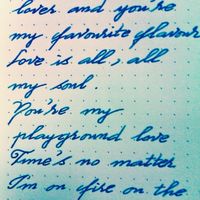 lover and you're
my favourite flavour
Love is all, all
my soul
You're my
playground love
Time's no matter
I'm on fire on the